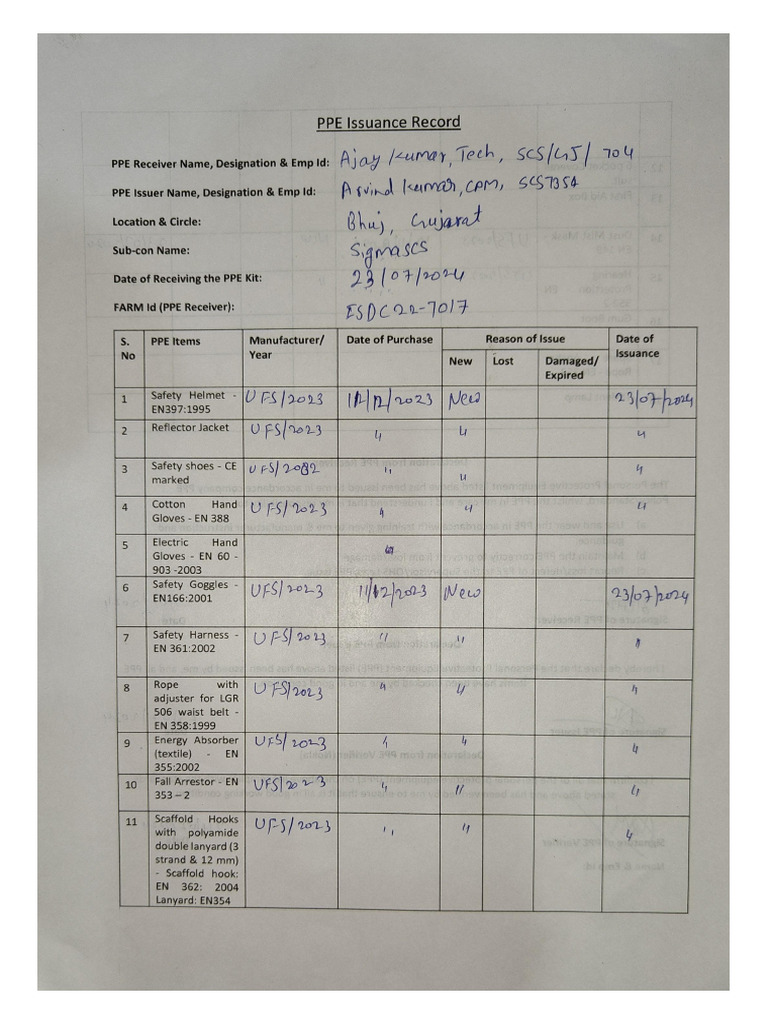 PPE Issuance Record
PPE Receiver Name, Designation & Emp Id: Ajay Kumar, Tech, SCS/GJ/ 704
PPE Issuer Name, Designation & Emp Id: Arvind Kumar, CPM, SCS7354
Location & Circle: Bhuj, Gujarat
Sub-con Name: SigmaSCS
Date of Receiving the PPE Kit: 23/07/2024
FARM Id (PPE Receiver): ESDC22-7017
S. No PPE Items Manufacturer/ Year Date of Purchase Reason of Issue Date of Issuance
New Lost Damaged/ Expired
1 Safety Helmet - UFS/2023 11/12/2023 New 23/07/2024
EN397:1995
2 Reflector Jacket UFS/2023 〃 〃 〃
3 Safety shoes - CE UFS/2022 〃 〃 〃
marked
4 Cotton Hand UFS/2023 〃 〃 〃
Gloves - EN 388
5 Electric Hand
Gloves - EN 60 -
903 -2003
6 Safety Goggles - UFS/2023 11/12/2023 New 23/07/2024
EN166:2001
7 Safety Harness - UFS/2023 〃 〃 〃
EN 361:2002
8 Rope with UFS/2023 〃 〃 〃
adjuster for LGR
506 waist belt -
EN 358:1999
9 Energy Absorber UFS/2023 〃 〃 〃
(textile) - EN
355:2002
10 Fall Arrestor - EN UFS/2023 〃 〃 〃
353 – 2
11 Scaffold Hooks UFS/2023 〃 〃 〃
with polyamide
double lanyard (3
strand & 12 mm)
- Scaffold hook:
EN 362: 2004
Lanyard: EN354